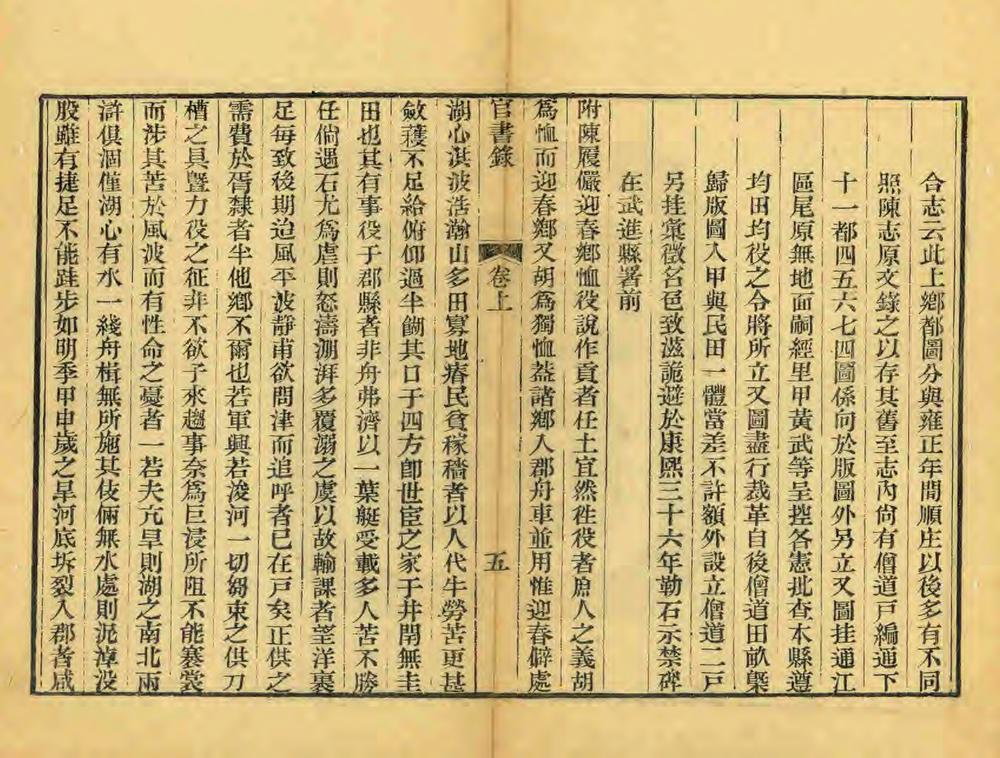 合志云此上鄉都圖分與雍正年間順庄以後多有不同
照陳志原文錄之以存其舊至志內尙有僧道戸編通下
十一都四五六七四圖係向於版圖外另立又圖挂通江
區尾原無地面嗣經里甲黃武等呈控各憲批查本縣遵
均田均役之令將所立又圖盡行裁革自後僧道田畝槩
歸版圖入甲與民田一體當差不許額外設立僧道二戸
另挂彙徵名色致滋詭避於康熙三十六年勒石示禁碑
在武進縣署前
附陳履儼迎春鄉恤役說作貢者任土宜然徃役者庶人之義胡
爲恤而迎春鄉又胡爲獨恤葢諸鄉入郡舟車並用惟迎春僻處
官書錄 卷上 五
湖心淇波浩瀚山多田寡地瘠民貧稼穡者以人代牛勞苦更甚
斂穫不足給俯仰過半餬其口于四方卽世宦之家于井閈無圭
田也其有事役于郡縣者非舟弗濟以一葉艇受載多人苦不勝
任倘遇石尤爲虐則怒濤淜湃多覆溺之虞以故輸課者望洋裹
足每致後期迨風平波靜甫欲問津而追呼者已在戸矣正供之
需費於胥隸者半他鄉不爾也若軍興若浚河一切芻束之供刀
槽之具曁力役之征非不欲子來趨事奈爲巨浸所阻不能褰裳
而涉其苦於風波而有性命之憂者一若夫亢旱則湖之南北兩
滸俱涸僅湖心有水一綫舟楫無所施其伎倆無水處則泥淖没
股雖有捷足不能跬步如明季甲申歲之旱河底坼裂入郡者咸